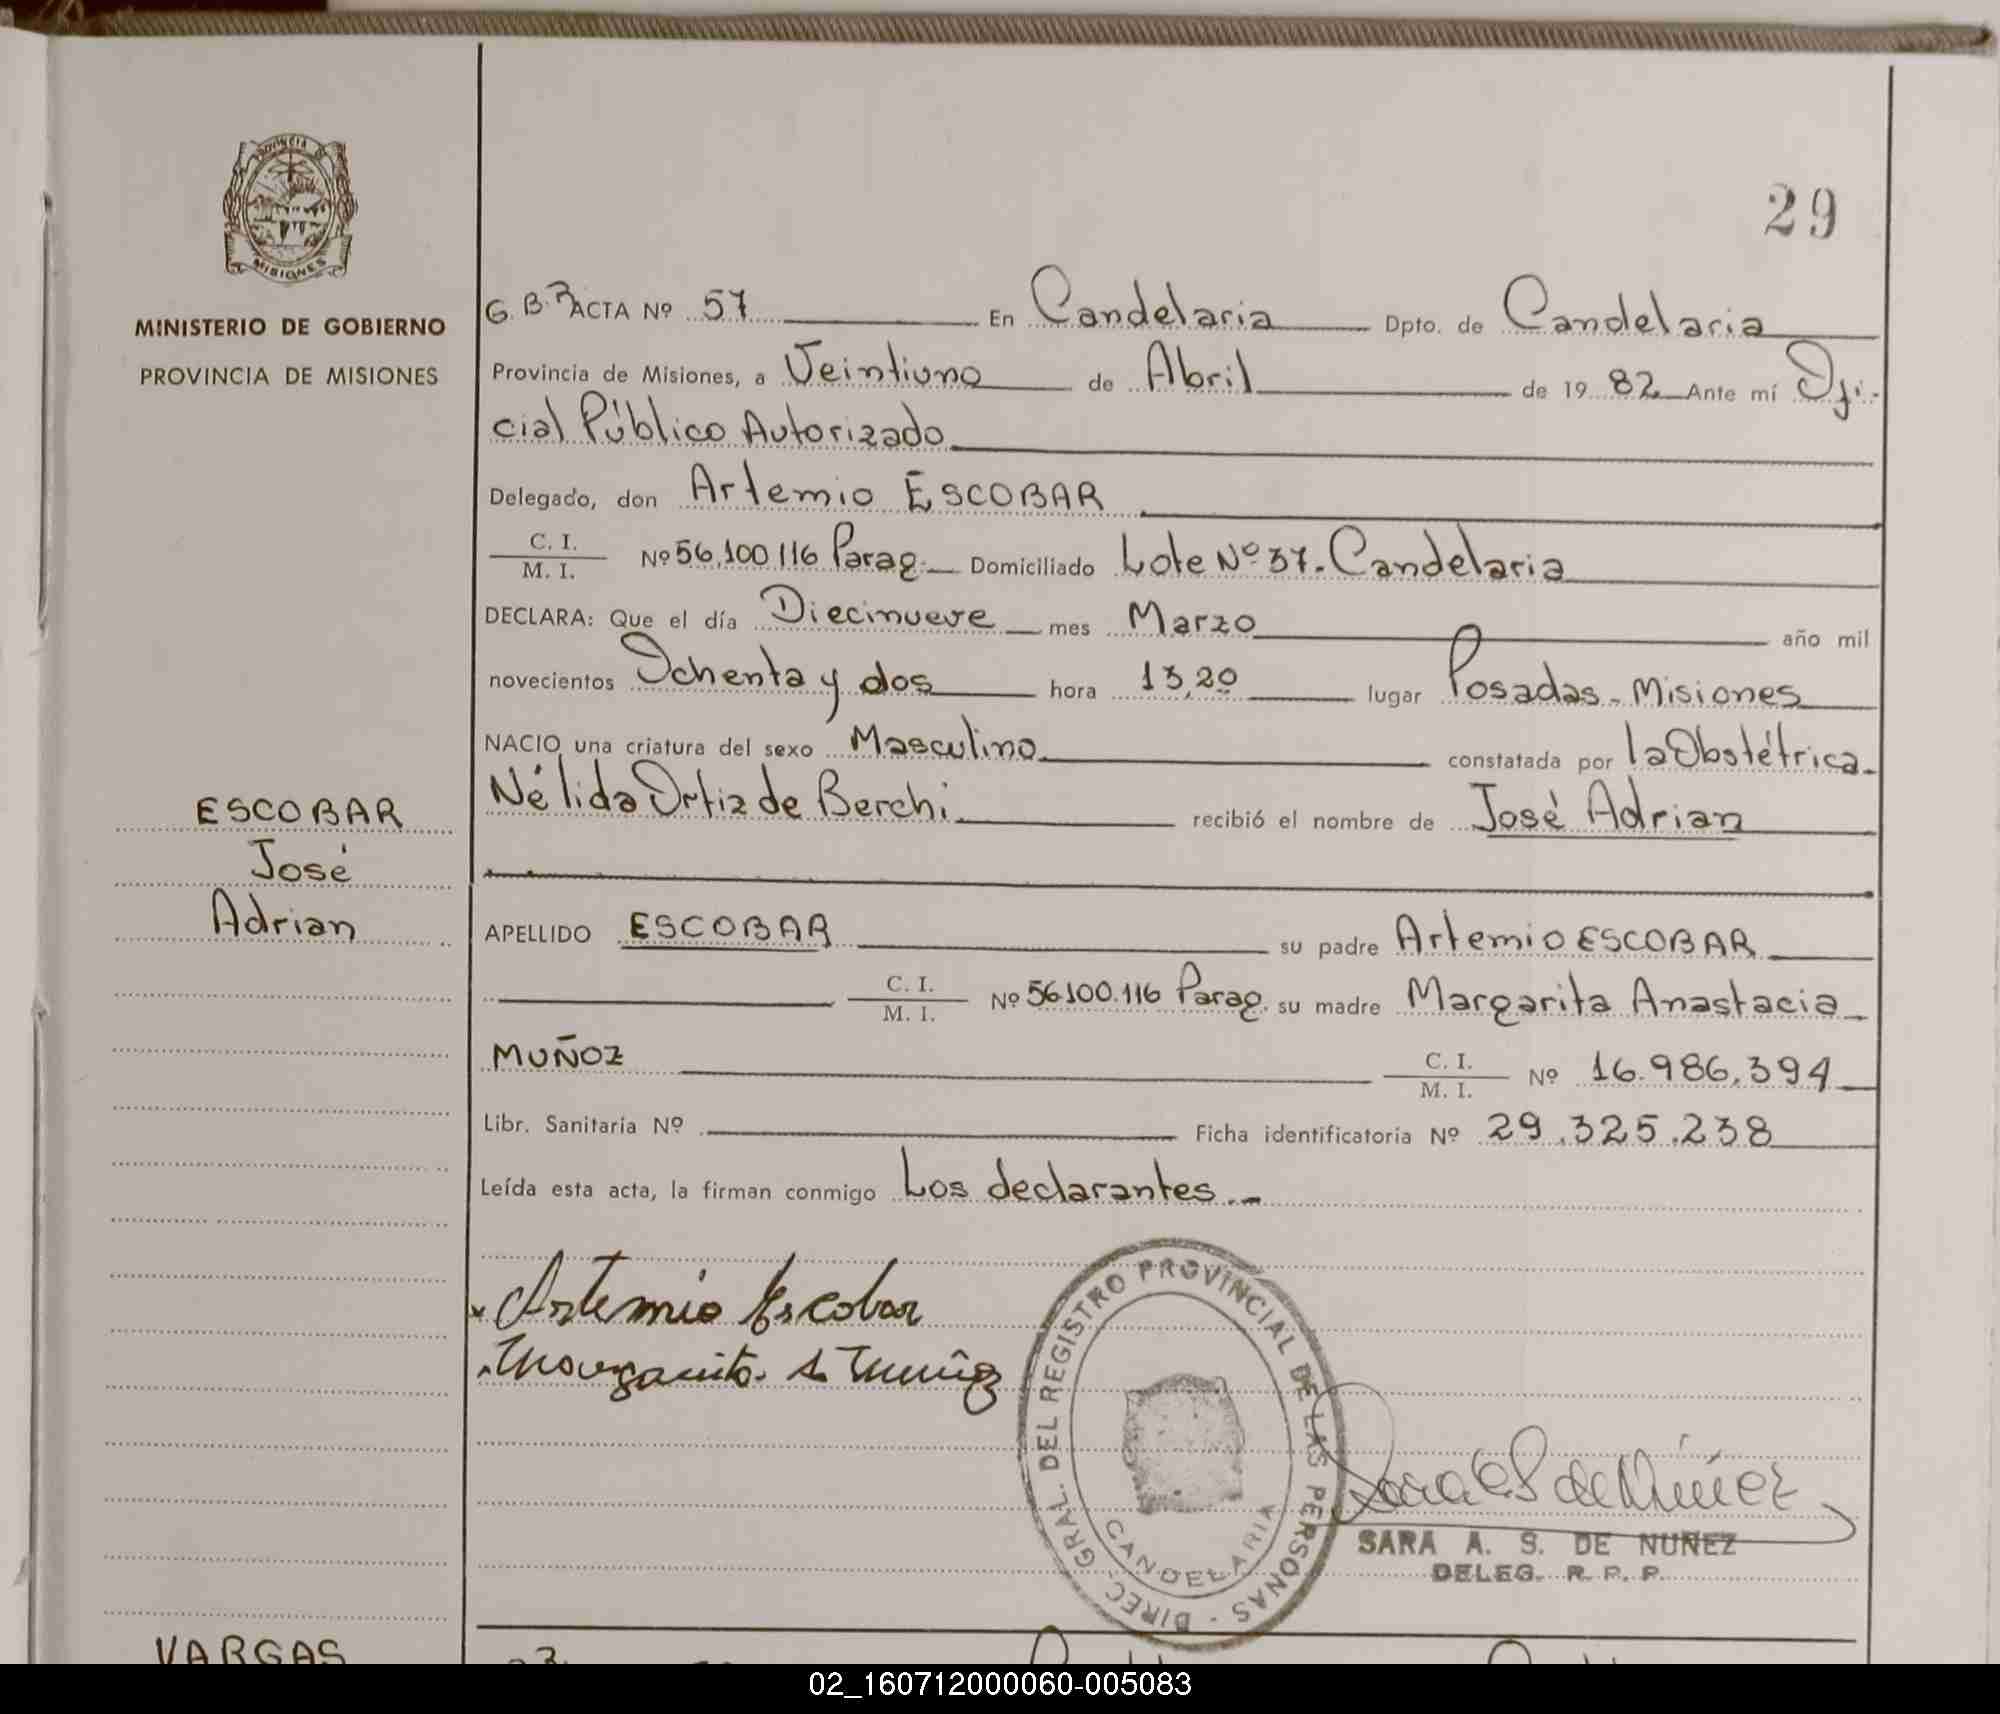 29
MINISTERIO DE GOBIERNO
PROVINCIA DE MISIONES
G. B. ACTA Nº 57 En Candelaria Dpto. de Candelaria
Provincia de Misiones, a Veintiuno de Abril de 19 82 Ante mí Ofi-
cial Público Autorizado
Delegado, don Artemio ESCOBAR
C. I.
M. I. Nº 56.100.116 Parag. Domiciliado Lote Nº 37. Candelaria
DECLARA: Que el día Diecinueve mes Marzo año mil
novecientos Ochenta y dos hora 13,20 lugar Posadas - Misiones
NACIO una criatura del sexo Masculino constatada por la Obstétrica
Nélida Ortiz de Berchi recibió el nombre de José Adrian
ESCOBAR
José
Adrian
APELLIDO ESCOBAR su padre Artemio ESCOBAR
C. I.
M. I. Nº 56.100.116 Parag. su madre Margarita Anastacia
MUÑOZ C. I.
M. I. Nº 16.986.394
Libr. Sanitaria Nº Ficha identificatoria Nº 29.325.238
Leída esta acta, la firman conmigo Los declarantes.-
Artemio Escobar
Margarita A Muñoz
DIREC. GRAL. DEL REGISTRO PROVINCIAL DE LAS PERSONAS -
CANDELARIA
Sara A S de Núñez
SARA A. S. DE NUÑEZ
DELEG. R. P. P.
VARGAS
02_160712000060-005083